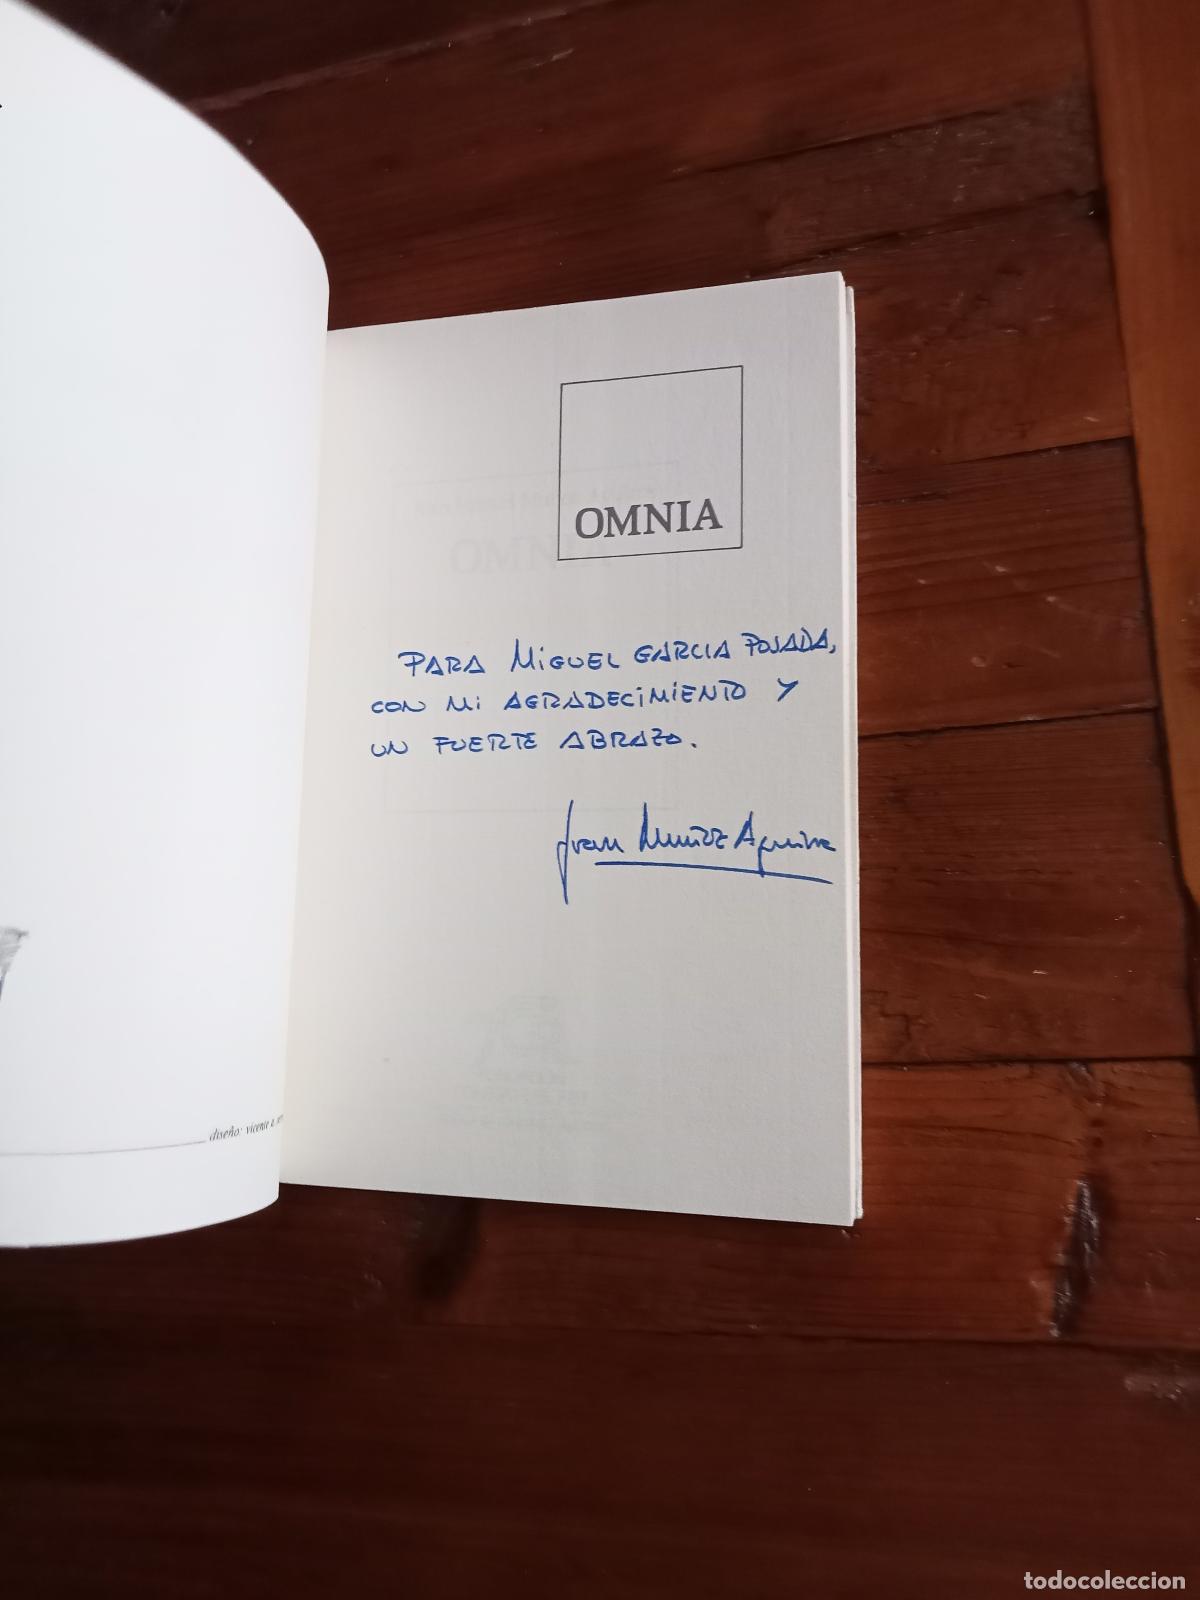 OMNIA
PARA MIGUEL GARCIA POSADA,
CON MI AGRADECIMIENTO Y
UN FUERTE ABRAZO.
Juan Muñoz Aguirre
diseño: vicente a.
todocoleccion